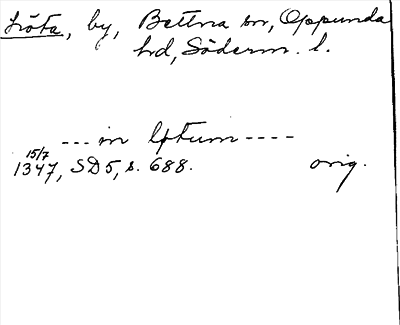 Löta, by, Bettna sn, Oppunda
hd, Söderm. l.
--- in løtum ----
15/7
1347, SD5, s. 688. orig.